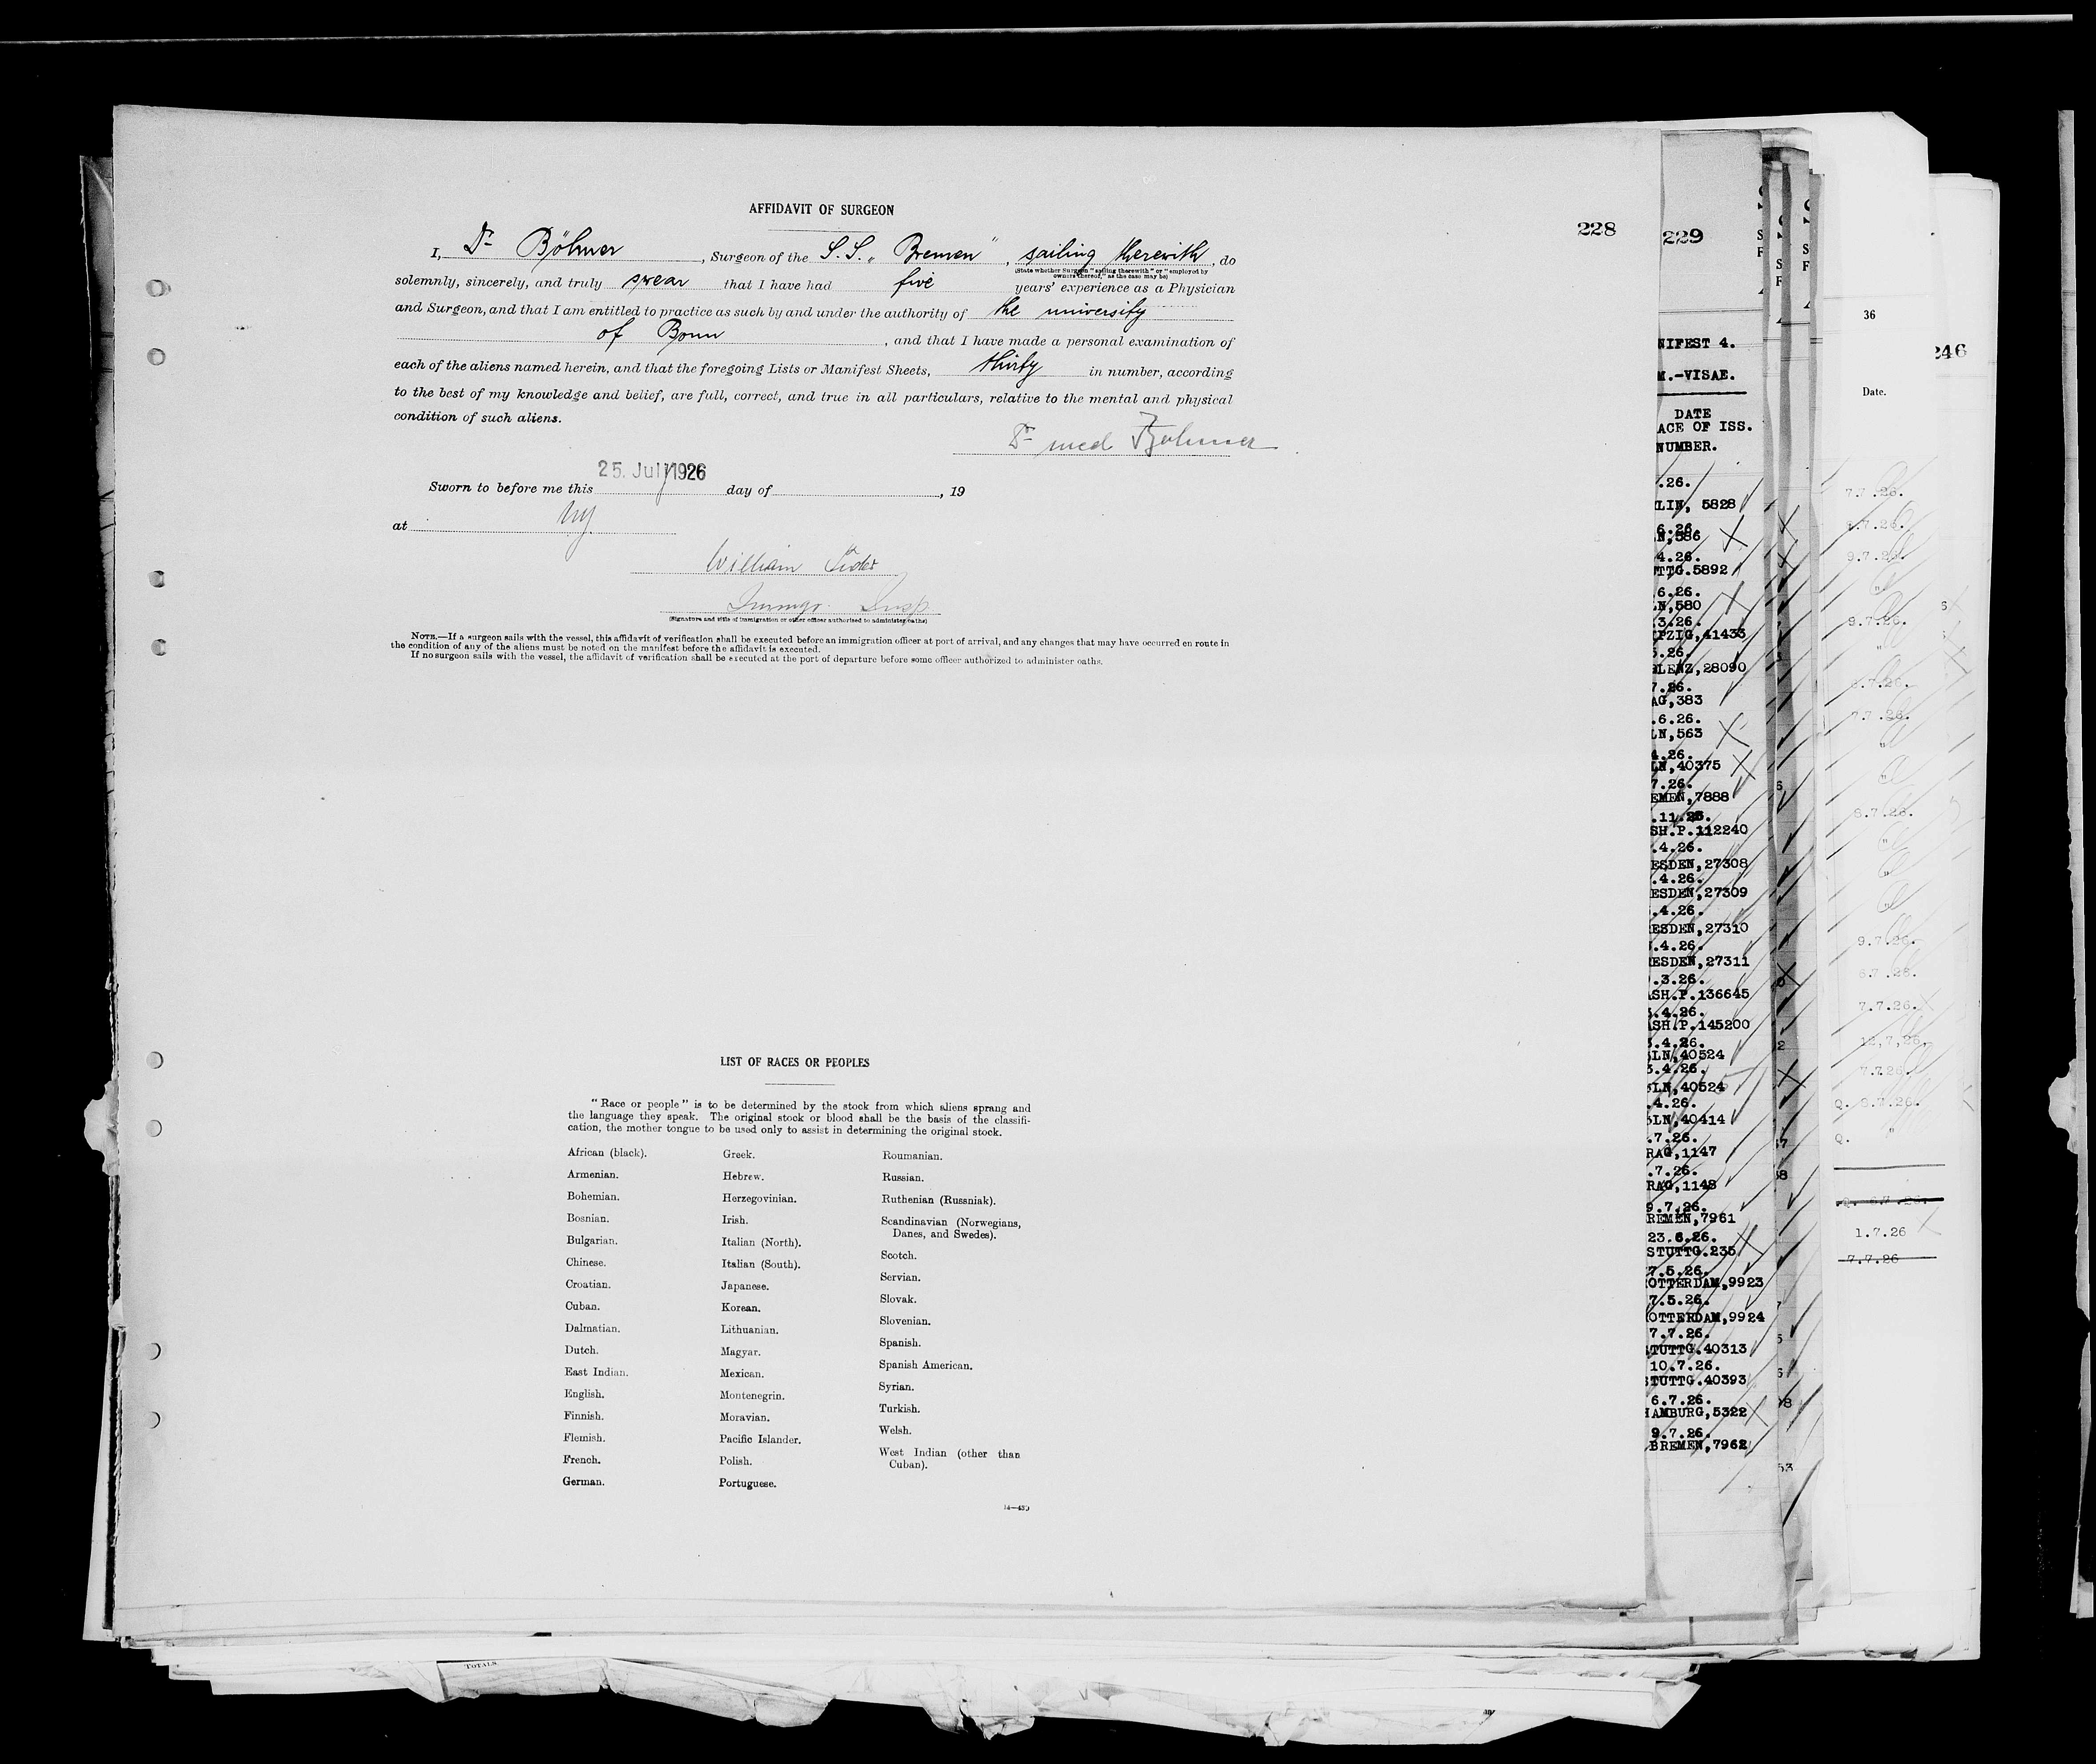 AFFIDAVIT OF SURGEON
228
I, Dr Böhmer, Surgeon of the S.S. „Bremen", sailing therewith, do
(State whether Surgeon "sailing therewith" or "employed by
owners thereof," as the case may be)
solemnly, sincerely, and truly swear that I have had five years' experience as a Physician
and Surgeon, and that I am entitled to practice as such by and under the authority of the university
of Bonn, and that I have made a personal examination of
each of the aliens named herein, and that the foregoing Lists or Manifest Sheets, thirty in number, according
to the best of my knowledge and belief, are full, correct, and true in all particulars, relative to the mental and physical
condition of such aliens.
Dr med Böhmer
Sworn to before me this 25. July 1926 day of , 19
at NY
William
Immgr. Insp.
(Signature and title of immigration or other officer authorized to administer oaths)
NOTE.—If a surgeon sails with the vessel, this affidavit of verification shall be executed before an immigration officer at port of arrival, and any changes that may have occurred en route in
the condition of any of the aliens must be noted on the manifest before the affidavit is executed.
If no surgeon sails with the vessel, the affidavit of verification shall be executed at the port of departure before some officer authorized to administer oaths.
LIST OF RACES OR PEOPLES
"Race or people" is to be determined by the stock from which aliens sprang and
the language they speak. The original stock or blood shall be the basis of the classifi-
cation, the mother tongue to be used only to assist in determining the original stock.
African (black).
Armenian.
Bohemian.
Bosnian.
Bulgarian.
Chinese.
Croatian.
Cuban.
Dalmatian.
Dutch.
East Indian.
English.
Finnish.
Flemish.
French.
German.
Greek.
Hebrew.
Herzegovinian.
Irish.
Italian (North).
Italian (South).
Japanese.
Korean.
Lithuanian.
Magyar.
Mexican.
Montenegrin.
Moravian.
Pacific Islander.
Polish.
Portuguese.
Roumanian.
Russian.
Ruthenian (Russniak).
Scandinavian (Norwegians,
Danes, and Swedes).
Scotch.
Servian.
Slovak.
Slovenian.
Spanish.
Spanish American.
Syrian.
Turkish.
Welsh.
West Indian (other than
Cuban).
14—430
229
NIFEST 4.
M.-VISAE.
DATE
ACE OF ISS.
NUMBER.
.26.
LIN, 5828
6.26.
N,586
4.26.
TTG.5892
6.26.
LN,580
3.26.
IPZIG,41433
5.26.
BLENZ,28090
7.26.
AG,383
.6.26.
LN,563
4.26.
LN,40375
7.26.
EMEN,7888
SH.P.112240
.4.26.
ESDEN,27308
.4.26.
ESDEN,27309
.4.26.
ESDEN,27310
.4.26.
ESDEN,27311
.3.26.
ASH.P.136645
.4.26.
ASH.P.145200
3.4.26.
LN,40524
3.4.26.
LN,40524
.4.26.
LN,40414
.7.26.
RAG,1147
.7.26.
RAG,1148
9.7.26.
REMEN,7961
23.6.26.
STUTTG.235
7.5.26.
OTTERDAM,9923
7.5.26.
OTTERDAM,9924
7.7.26.
STUTTG.40313
10.7.26.
STUTTG.40393
6.7.26.
HAMBURG,5322
9.7.26.
BREMEN,7962
53
36
246
Date.
7.7.26.
9.7.26.
"
9.7.26.
"
7.7.26.
"
"
8.7.26.
"
"
"
9.7.26.
6.7.26.
7.7.26.
12.7.26.
7.7.26.
Q. 8.7.26.
Q. "
1.7.26
7.7.26
TOTALS